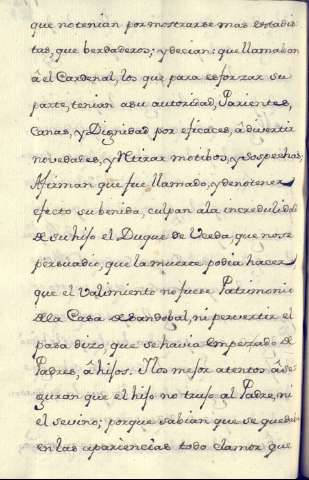 que no tenian por mostrarse mas estadis-
tas, que berdaderos; y decian: que llamaban
â el Cardenal, los que para esforzar su
parte, tenian asu autoridad, Parientes,
Canas, y Dignidad por eficaces, â divertir
novedades, y Retirar motibos, y sospechas,
Afirman que fue llamado, y de no tener
efecto su benida, culpan a la incredulidad
de su hijo el Duque de Uceda, que no se
persuadio, que la muerte podia hacer
que el Valimiento no fuese Patrimonio
de la Casa de Sandobal, ni pervertir el
paradizo, que se havia empezado de
Padres, â hijos. Y los mejor atentos âse-
guran que el hijo no trujo al Padre, ni
el se vino; porque sabian que se quedaba
en las apariencias todo clamor que